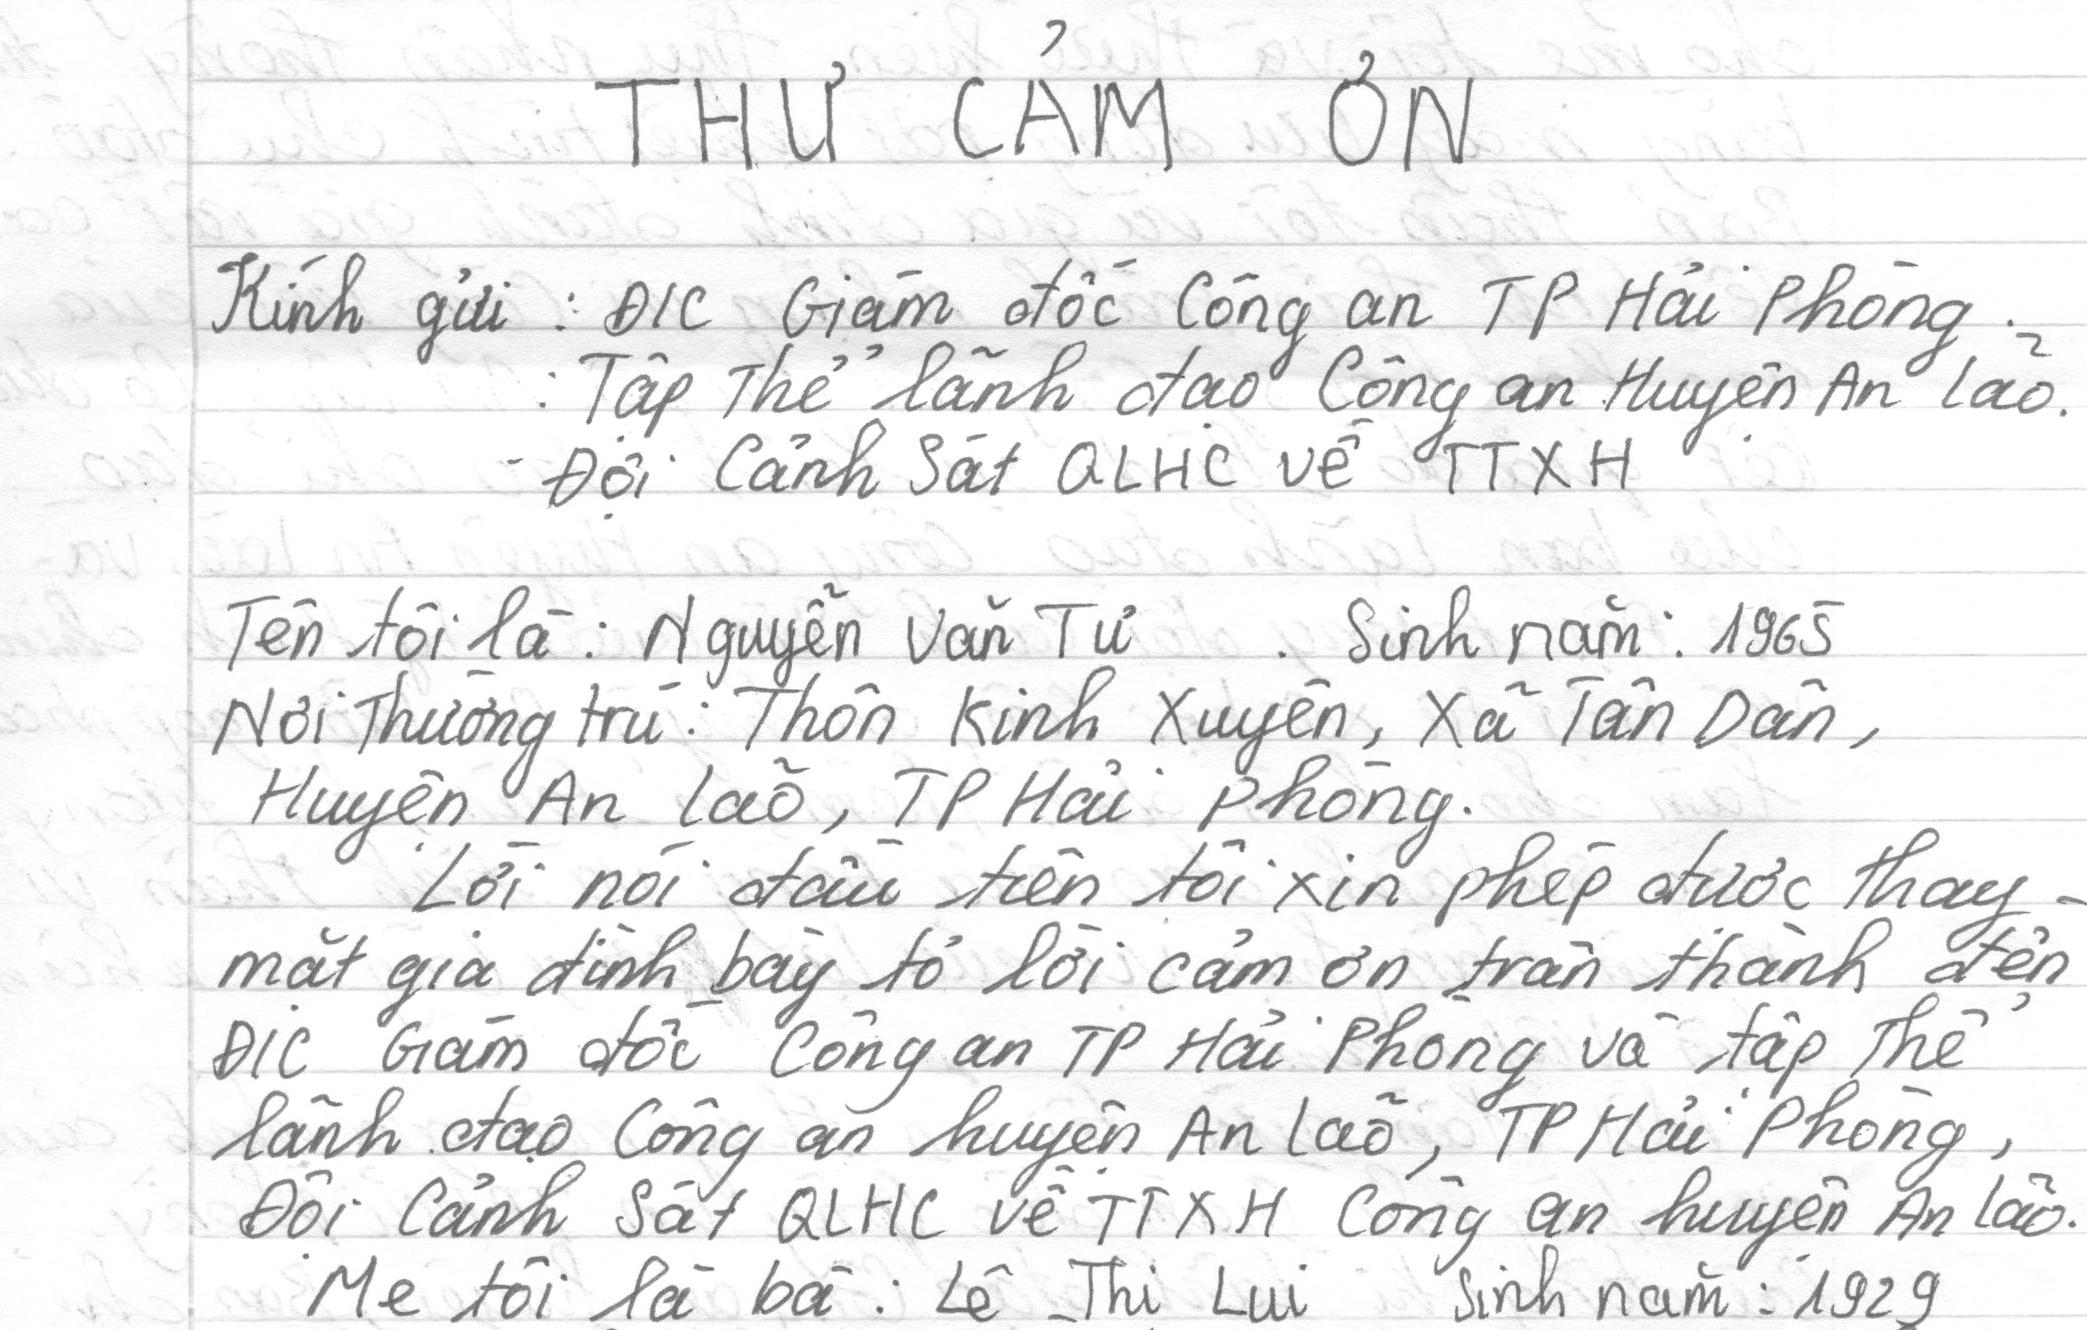 THƯ CẢM ƠN
Kính gửi : Đ/C Giám đốc Công an TP Hải Phòng.
: Tập Thể lãnh đạo Công an Huyện An Lão.
- Đội Cảnh Sát QLHC về TTXH
Tên tôi là : Nguyễn Văn Tư . Sinh năm : 1965
Nơi Thường trú : Thôn Kinh Xuyên, Xã Tân Dân,
Huyện An Lão, TP Hải Phòng.
Lời nói đầu tiên tôi xin phép được thay
mặt gia đình bày tỏ lời cảm ơn trân thành đến
Đ/C Giám đốc Công an TP Hải Phòng và tập Thể
lãnh đạo Công an huyện An Lão, TP Hải Phòng,
Đội Cảnh Sát QLHC về TTXH Công an huyện An Lão.
Mẹ tôi là bà : Lê Thị Lui Sinh năm : 1929